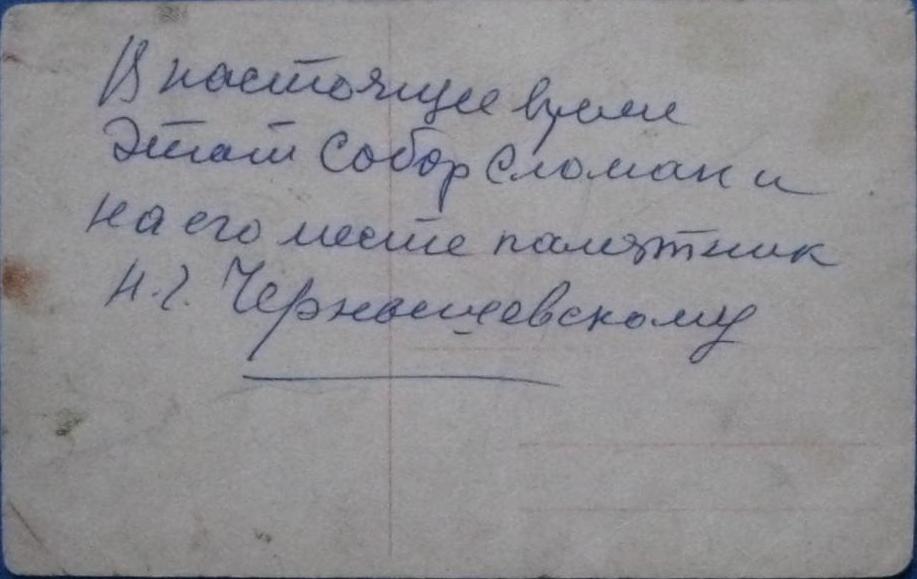 В настоящее время
Этот Собор Сломан и
на его месте памятник
Н.Г. Чернышевскому